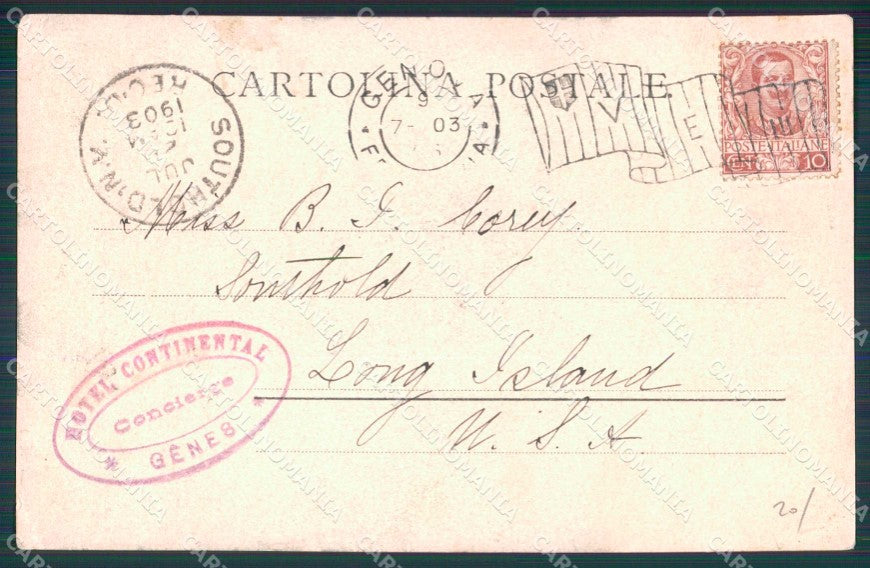 CARTOLINA POSTALE
GENOVA
9
7- 03
FERROVIA
V E
POSTE ITALIANE
CENT. 10
SOUTHOLD N.Y.
JUL
10 A
1903
REC'D.
Miss B. I. Corey
Southold
Long Island
U. S. A.
HOTEL CONTINENTAL
Concierge
* GÊNES *
20/
CARTOLINOMANIA